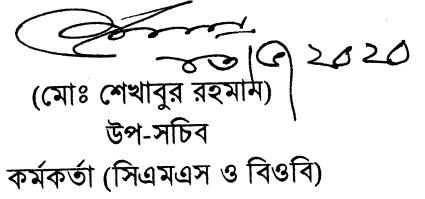 ২০২০
(মোঃ শেখাবুর রহমান)
উপ-সচিব
কর্মকর্তা (সিএমএস ও বিওবি)